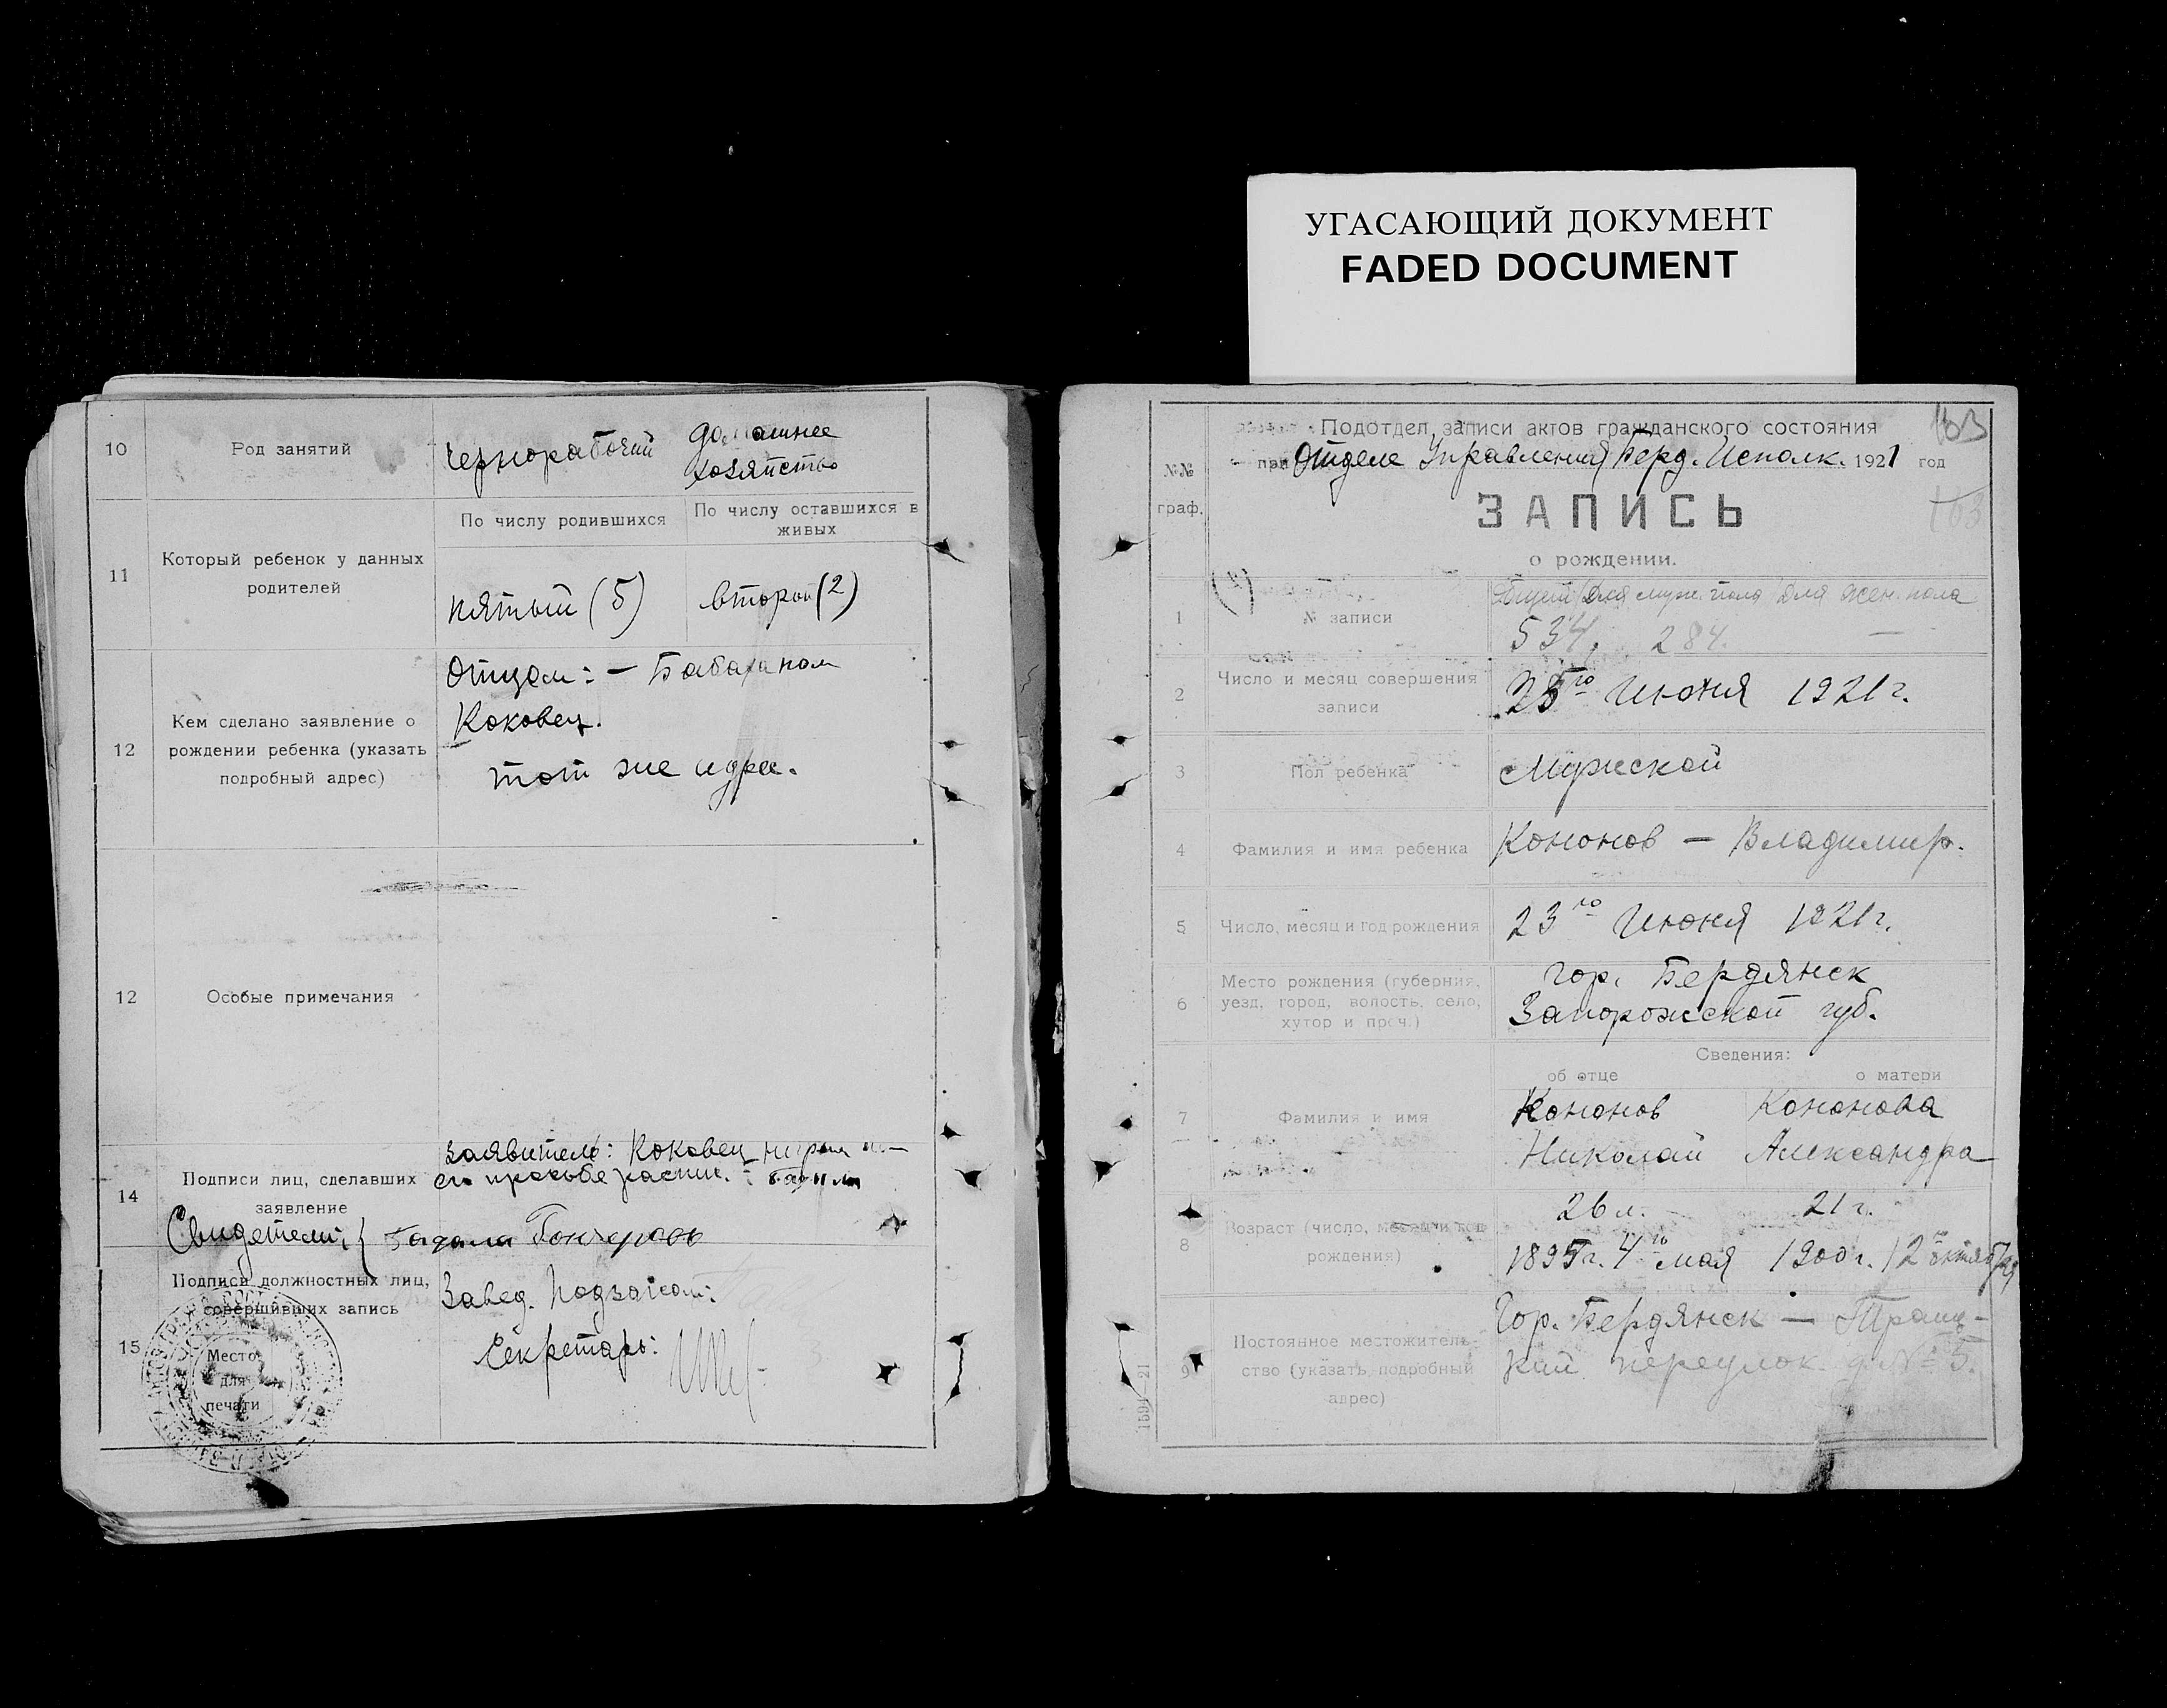 УГАСАЮЩИЙ ДОКУМЕНТ
FADED DOCUMENT
10 Род занятий чернорабочий домашнее
хозяйство
11 Который ребенок у данных родителей
По числу родившихся По числу оставшихся в живых
пятый (5) второй (2)
12 Кем сделано заявление о рождении ребенка (указать подробный адрес)
Отцом: —
Коковец.
тот же адрес.
12 Особые примечания
14 Подписи лиц, сделавших заявление
Заявитель: Коковец
его просьбе распис.
Свидетели:
Гончаровъ
15 Подписи должностных лиц, совершивших запись
Завед. Подзагсом:
Секретарь:
Место
для
печати
163
Подотдел записи актов гражданского состояния
при Отделе Управления Берд. Исполк. 1921 год
№№
граф.
ЗАПИСЬ
103
о рождении.
Общий Для муж. пола Для жен. пола
1 № записи 534. 284. —
2 Число и месяц совершения записи 25го Июня 1921 г.
3 Пол ребенка Мужской
4 Фамилия и имя ребенка Кононов — Владимир.
5 Число, месяц и год рождения 23го Июня 1921 г.
6 Место рождения (губерния, уезд, город, волость, село, хутор и проч.)
гор. Бердянск
Запорожской губ.
Сведения:
об отце о матери
7 Фамилия и имя
Кононов Кононова
Николай Александра
8 Возраст (число, месяц и год рождения)
26 л. 21 г.
1895 г. 4го мая 1900 г. 12го октября
9 Постоянное местожительство (указать подробный адрес)
Гор. Бердянск —
переулок д № 5.